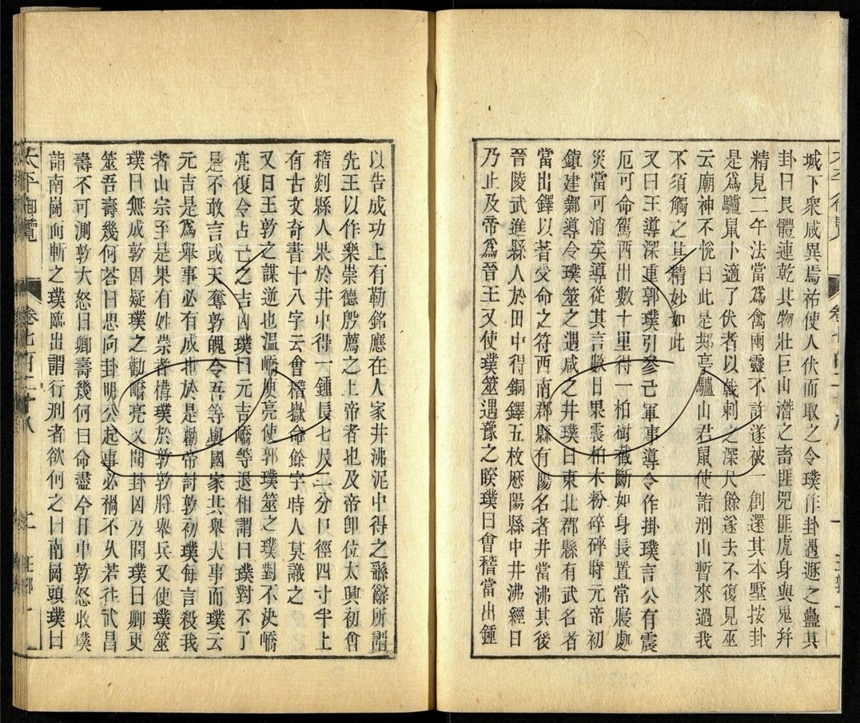 城下衆咸異焉祐使人伏而取之令璞作卦遇遯之蠱其
卦曰艮體連乾其物壯巨山潛之畜匪兕匪虎身與鬼并
精見二午法當爲禽兩靈不許遂被一創還其本墅按卦
是爲驢鼠卜適了伏者以戟刺之深尺餘遂去不復見巫
云廟神不悅曰此是䢼亭驢山君鼠使詣荆山暫來過我
不須觸之其精妙如此
又曰王導深重郭璞引參己軍事導令作掛璞言公有震
厄可命駕西出數十里得一柏樹截斷如身長置常寢處
災當可消矣導從其言數日果震柏木粉碎碎時元帝初
鎮建鄴導令璞筮之遇咸之井璞曰東北郡縣有武名者
當出鐸以著受命之符西南郡縣有陽名者井當沸其後
晉陵武進縣人於田中得銅鐸五枚歷陽縣中井沸經日
乃止及帝爲晉王又使璞筮遇豫之睽璞曰會稽當出鍾
以告成功上有勒銘應在人家井沸泥中得之繇辭所謂
先王以作樂崇德殷薦之上帝者也及帝卽位太興初會
稽剡縣人果於井中得一鍾長七尺二分口徑四寸半上
有古文奇書十八字云會稽嶽命餘字時人莫識之
又曰王敦之謀逆也溫嶠庾亮使郭璞筮之璞對不決嶠
亮復令占己之吉凶璞曰元吉嶠等退相謂曰璞對不了
是不敢言或天奪敦魄今吾等與國家共舉大事而璞云
元吉是爲舉事必有成也於是勸帝討敦初璞每言殺我
者山宗至是果有姓崇者構璞於敦敦將舉兵又使璞筮
璞曰無成敦因疑璞之勸嶠亮又聞卦凶乃問璞曰卿更
筮吾壽幾何荅曰思向卦明公起事必禍不久若往武昌
壽不可測敦大怒曰卿壽幾何曰命盡今日中敦怒收璞
詣南崗而斬之璞臨出謂行刑者欲何之曰南崗頭璞曰
太平御覽 卷七百二十八